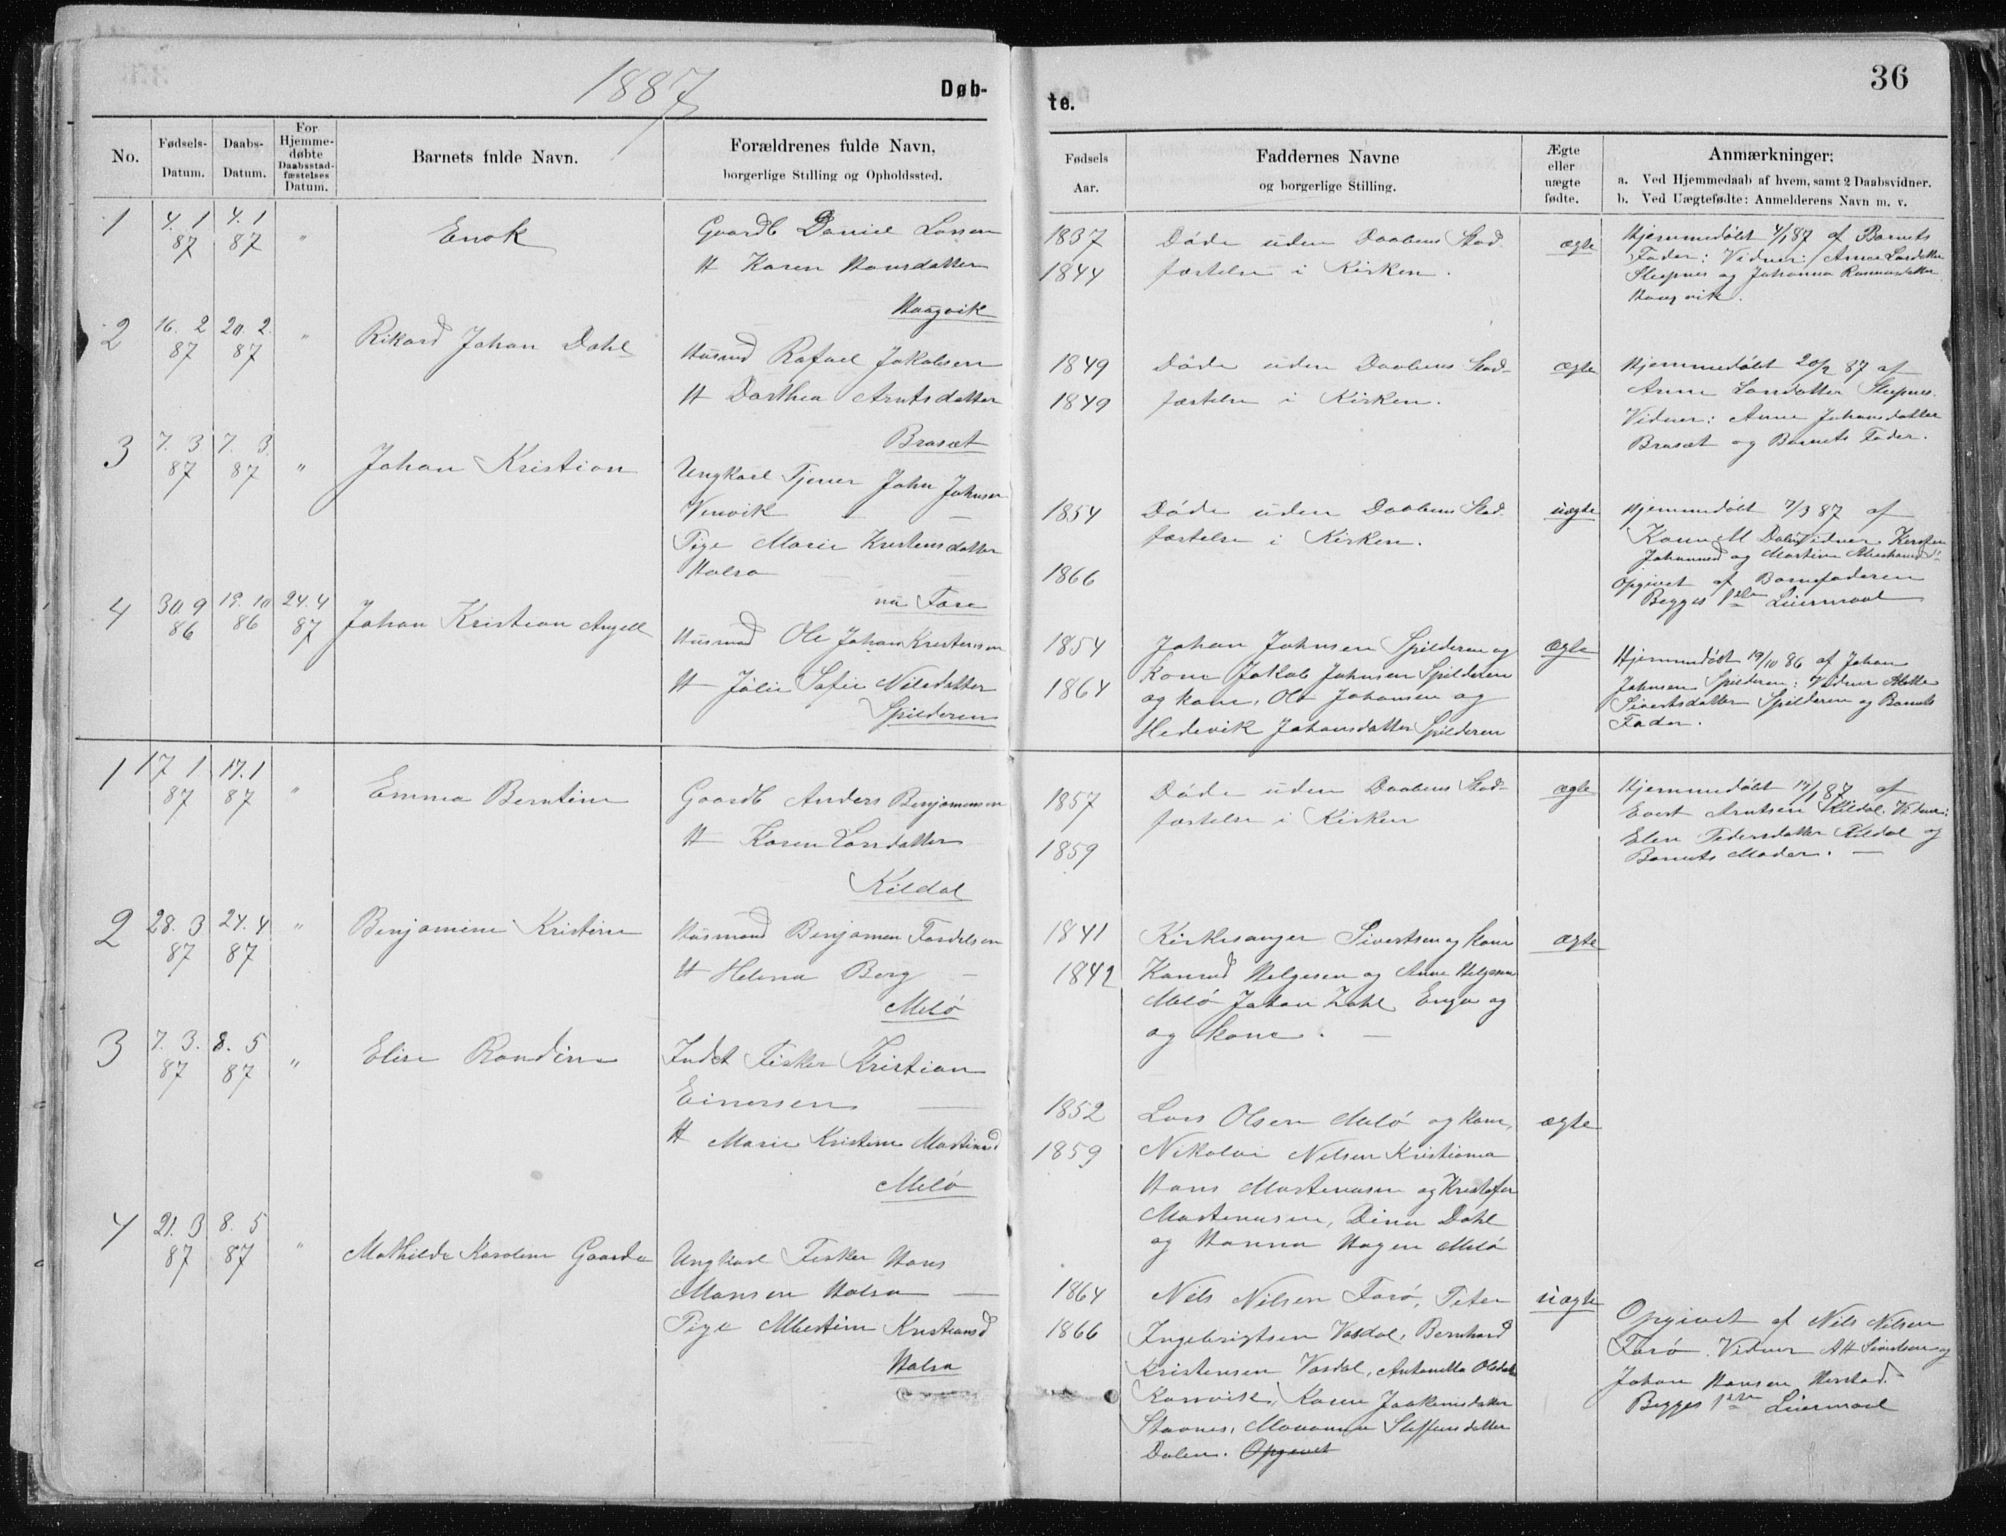 1887
Døb-
te.
36
No.
Fødsels-
Datum.
Daabs-
Datum.
For
Hjemme-
døbte
Daabsstad-
fæstelses
Datum.
Barnets fulde Navn.
Forældrenes fulde Navn,
borgerlige Stilling og Opholdssted.
Fødsels
Aar.
Faddernes Navne
og borgerlige Stilling.
Ægte
eller
uægte
fødte.
Anmærkninger:
a. Ved Hjemmedaab af hvem, samt 2 Daabsvidner.
b. Ved Uægtefødte: Anmelderens Navn m. v.
1
4. 1
87
4. 1
87
"
Enok
Gaardb Daniel Larsen
H Karen Hansdatter
Haagvik
1837
1844
Døde uden Daabens Stad-
fæstelse i Kirken.
ægte
Hjemmedøbt 4/1 87 af Barnets
Fader: Vidner: Anne Larsdatter
Sleepnes og Johanna Rasmusdatter
Haagvik.
2
16. 2
87
20. 2.
87
"
Rikard Johan Dahl
Husmd Rafael Jakobsen
H Dorthea Arntsdatter
Braset
1849
1849
Døde uden Daabens Stad-
fæstelse i Kirken.
ægte
Hjemmedøbt 20/2 87 af
Anne Larsdatter Sleepnes.
Vidner: Anne Johansdatter
Braset og Barnets Fader.
3
7. 3
87
7. 3.
87
"
Johan Kristian
Ungkarl Tjener John Johnsen
Venvik
Pige Marie Kristensdatter
Halsa
nu Fore
1854
1866
Døde uden Daabens Stad-
fæstelse i Kirken.
uægte
Hjemmedøbt 7/3 87 af
Kone M Dalen Vidner
Johannesd og Martine
Opgivet af Barnefaderen
Begges 1ste Leiermaal
4
30. 9
86
19. 10
86
24. 4
87
Johan Kristian Angell
Husmd Ole Johan Kristensen
H Julie Sofie Nilsdatter
Spilderen
1854
1864
Johan Johnsen Spilderen og
Kone Jakob Johnsen Spilderen
og kone, Ole Johansen og
Hedevik Johansdatter Spilderen
Ægte
Hjemmedøbt 19/10 86 af Johan
Johnsen Spilderen: Vidner
Sivertsdatter Spilderen og Barnets
Fader.
1
17 1
87
17. 1
87
"
Emma Berntine
Gaardb Anders Benjaminsen
H Karen Larsdatter
Kildal
1857
1859
Døde uden Daabens Stad-
fæstelse i Kirken
ægte
Hjemmedøbt 17/1 87 af
Evert Arntsen Kildal. Vidner:
Elen Pedersdatter Kildal og
Barnets Moder.
2
28. 3
87
24. 4
87
"
Benjamine Kristine
Husmand Benjamin
H Helena Berg
Melø
1841
1842
Kirkesanger Sivertsen og kone
Konrad Helgesen og Anne Helgesen
Melø Johan Zahl Enga og
og kone.
ægte
3
7. 3.
87
8. 5
87
"
Elise Randine
Indst Fisker Kristian
Einersen
H Marie Kristine Martinusd
Melø
1852
1859
Lars Olsen Melø og kone,
Nikolai Nilsen Kristiania
Hans Martinusen og Kristofer
Martinusen, Dina Dahl
og Hanna Hagen Melø
ægte
4
21. 3
87
8. 5
87
"
Mathilde Karoline Gaarda
Ungkarl Fisker Hans
Monsen Halsa
Pige Albertine Kristiansd
Halsa
1864
1866
Nils Nilsen Forø, Peter
Ingebrigtsen Vasdal, Bernhard
Kristensen Vasdal, Antonetta Olsdatt
Karen Jaakimsdatter
Stavnes, Marianne Steffensdatter
Dalen. Opgivet
uægte
Opgivet af Nils Nilsen
Forø. Vidner AH Sivertsen og
Johan Hansen
Begges 1ste Leiermaal